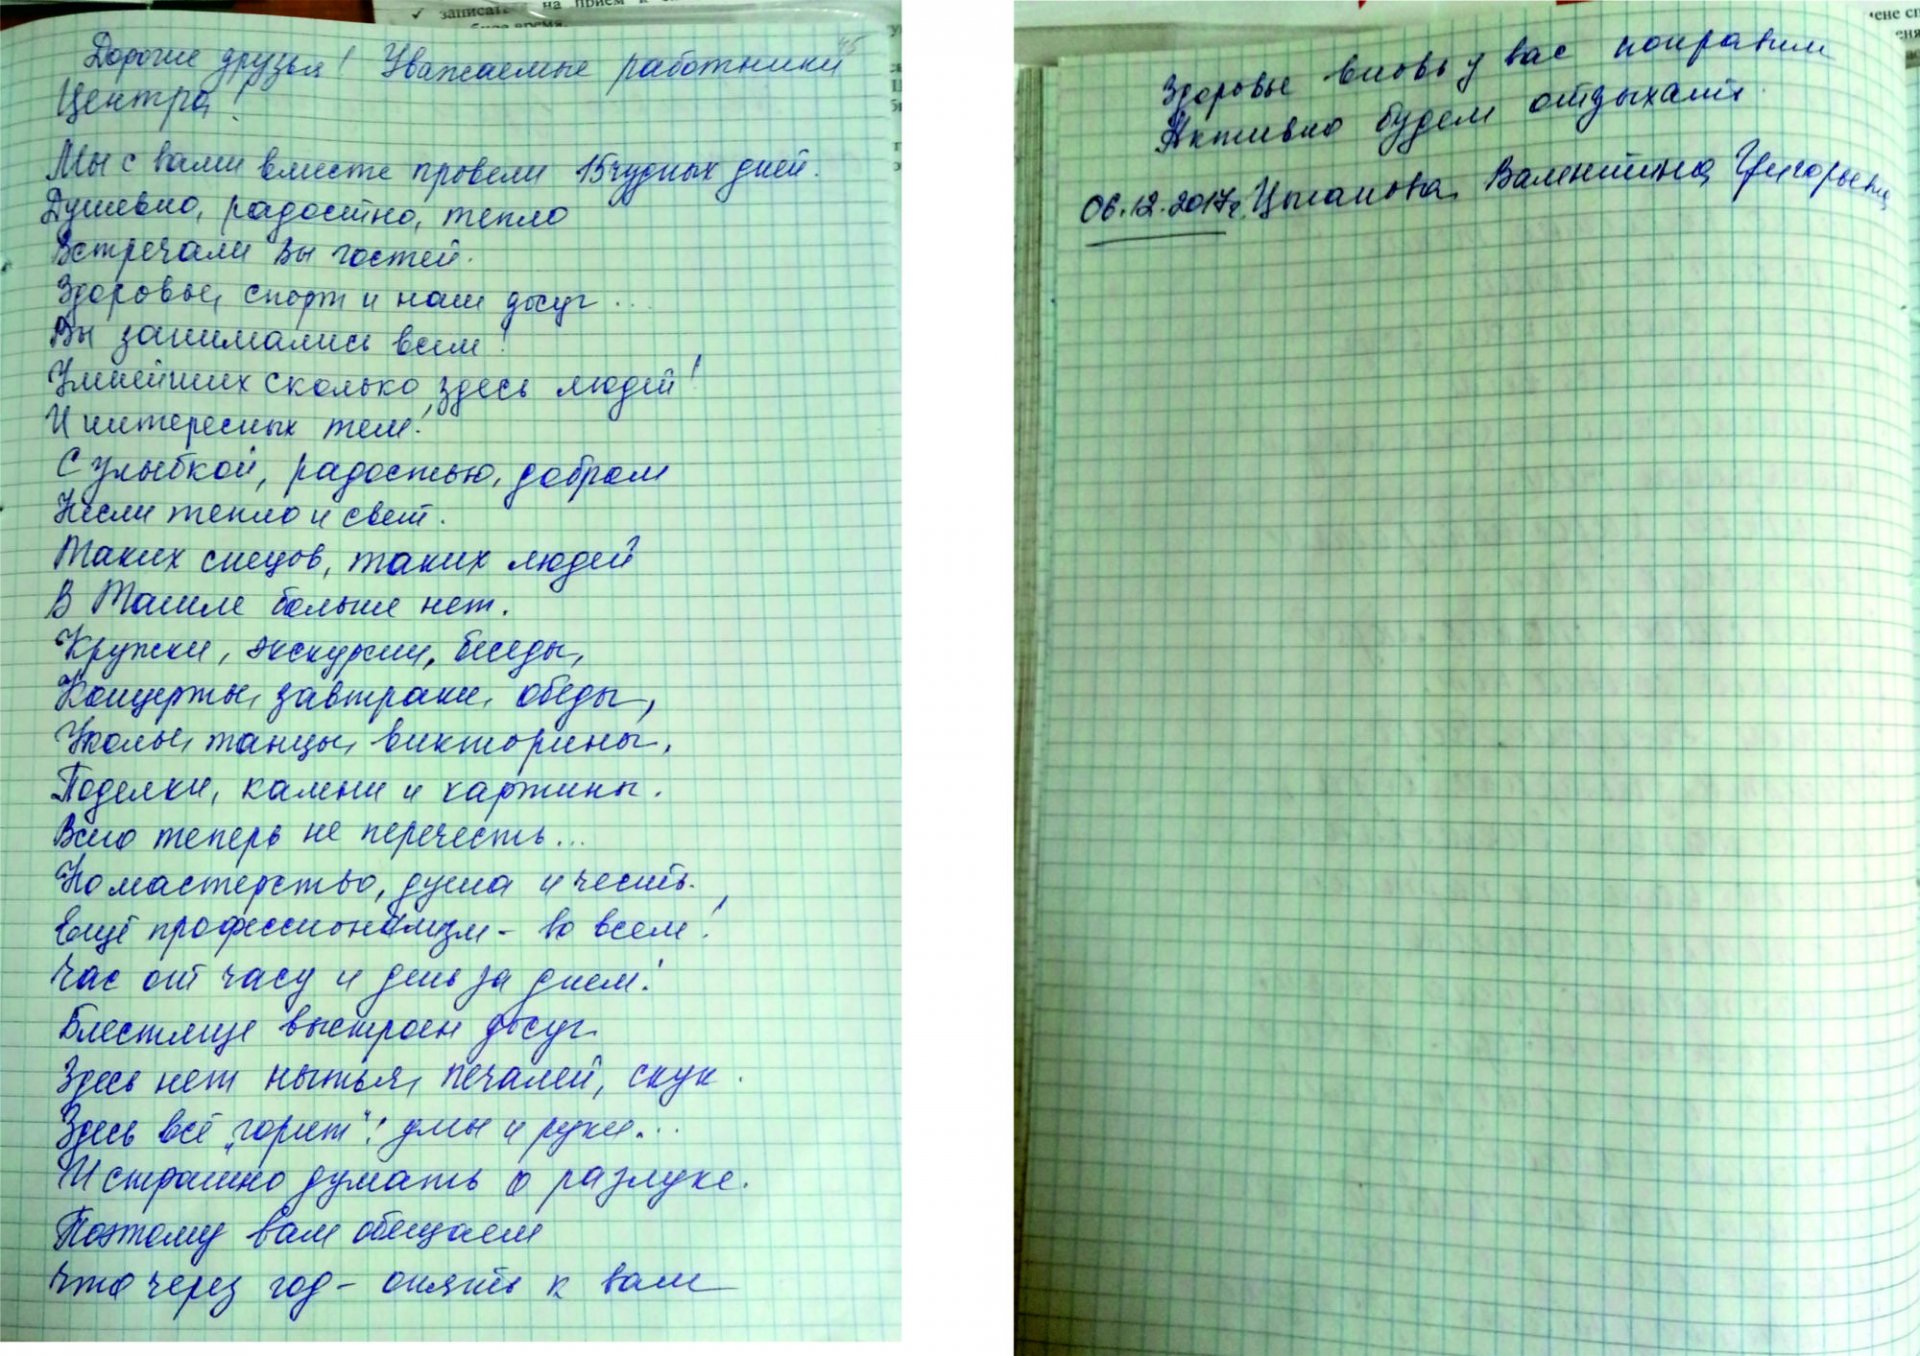 ✓ записат на прием к
бное время.
45
Дорогие друзья! Уважаемые работники
Центра!
Мы с вами вместе провели 15 чудных дней.
Душевно, радостно, тепло
Встречали Вы гостей.
Здоровье, спорт и наш досуг...
Вы занимались всем!
Умнейших сколько здесь людей!
И интересных тем!
С улыбкой, радостью, добром
Несли тепло и свет.
Таких спецов, таких людей
В Тагиле больше нет.
Кружки, экскурсии, беседы,
Концерты, завтраки, обеды,
Уколы, танцы, викторины,
Поделки, камни и картины.
Всего теперь не перечесть...
Но мастерство, душа и честь.
Ещё профессионализм - во всем!
Час от часу и день за днем!
Блестяще выстроен досуг.
Здесь нет нытья, печалей, скук.
Здесь всё "горит": умы и руки...
И страшно думать о разлуке.
Поэтому вам обещаем
Что через год - опять к вам
Здоровье вновь у вас поправим
Активно будем отдыхать.
06.12.2017г. Цыганова Валентина Григорьевна